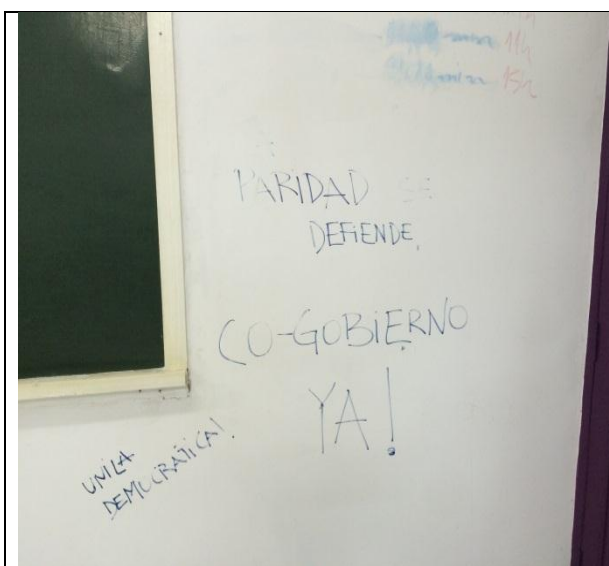 11h
15h
PARIDAD SE
DEFIENDE,
CO-GOBIERNO
YA!
UNILA
DEMOCRATICA!